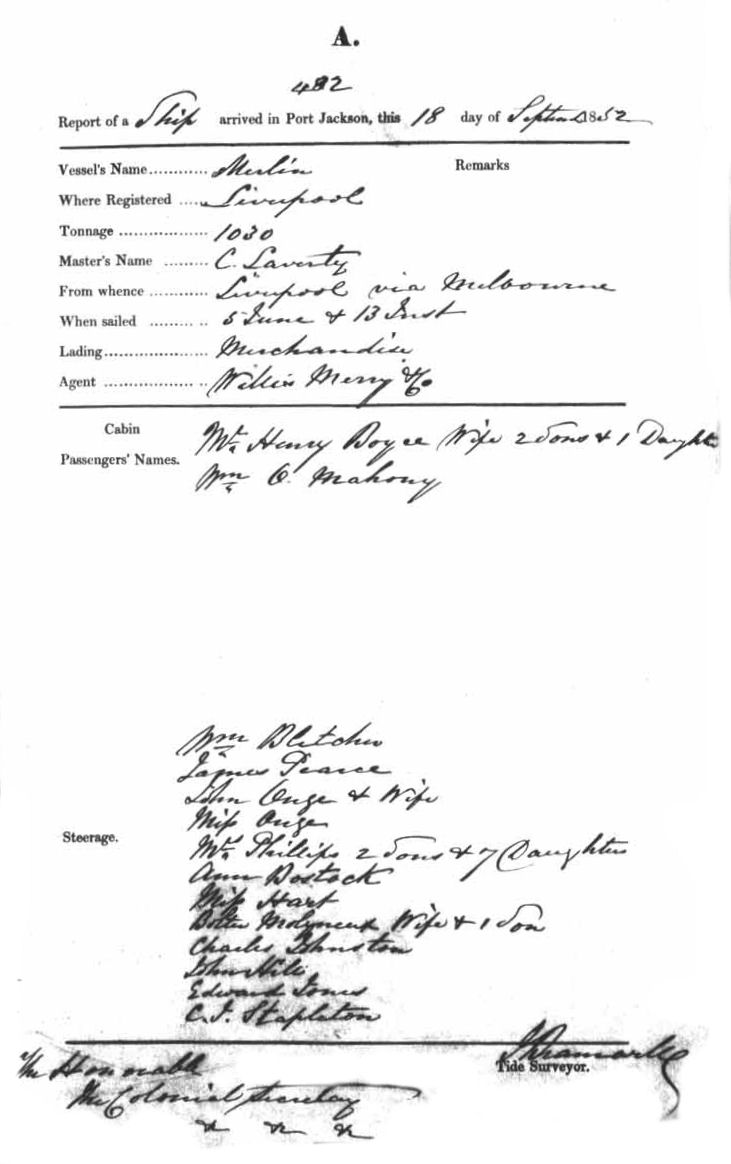 A.
482
Report of a Ship arrived in Port Jackson, this 18 day of Septem 1852
Vessel's Name............ Merlin Remarks
Where Registered ..... Liverpool
Tonnage .................. 1030
Master's Name ......... C. Laverty
From whence ............ Liverpool via Melbourne
When sailed ......... .. 5 June & 13 Inst
Lading..................... Merchandise
Agent .................. .. Willis Merry & Co
Cabin
Passengers' Names.
Mr. Henry Boyce Wife 2 Sons & 1 Daughter
Wm O. Mahony
Steerage.
Wm
James Pearce
John Onge & Wife
Miss Onge
Phillips 2 Sons & 7 Daughters
Ann Bostock
Miss Hart
Molyneux Wife & 1 Son
Charles Johnston
John
Edward Jones
C. J. Stapleton
Tide Surveyor.
The Honorable
The Colonial Secretary